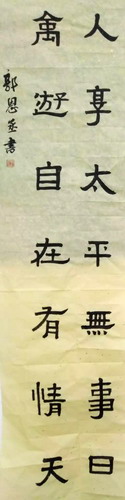 人享太平無事日
禽遊自在有情天
郭恩書